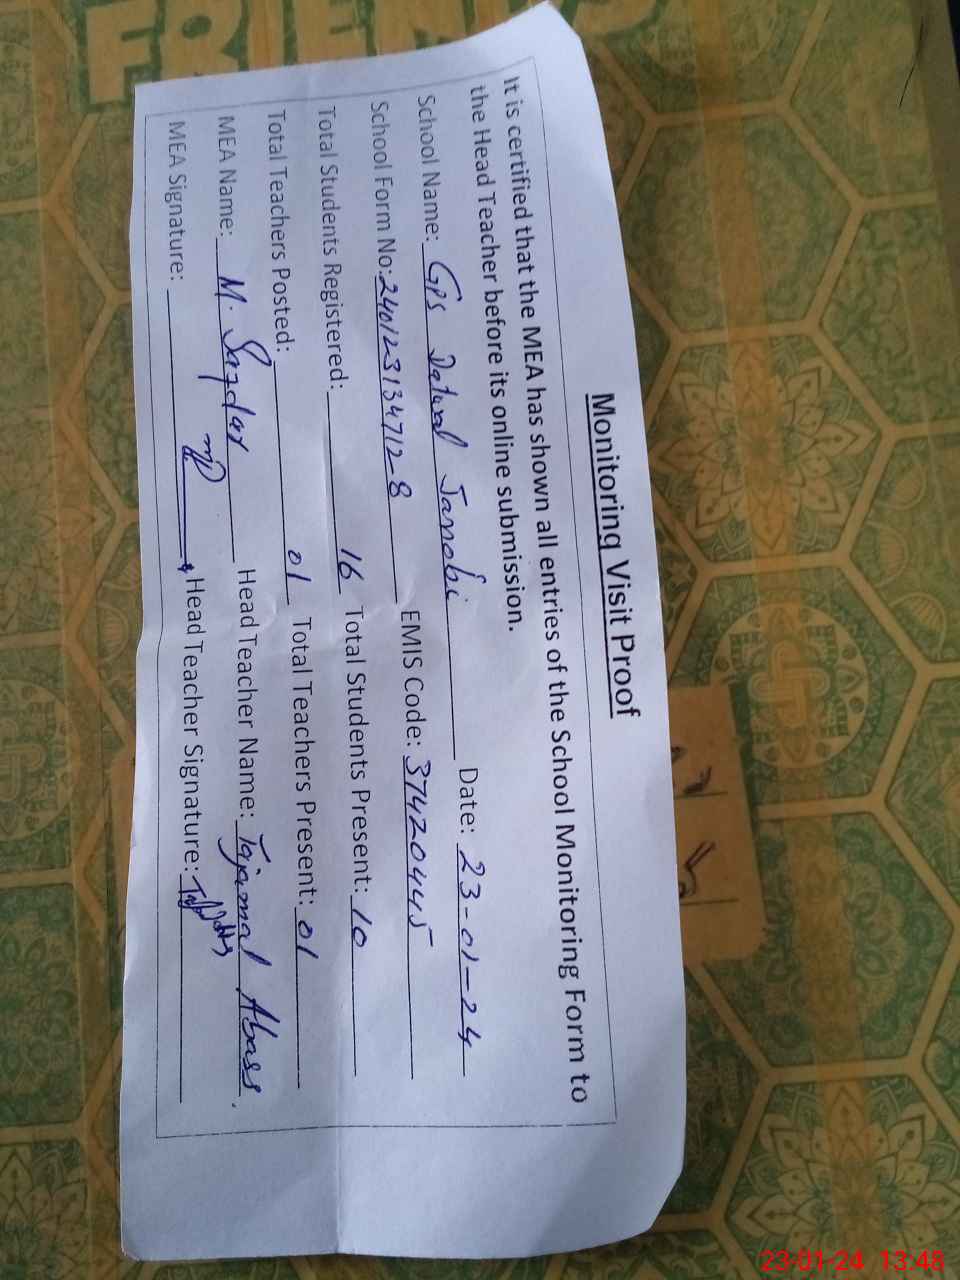 FRIENDS
Monitoring Visit Proof
It is certified that the MEA has shown all entries of the School Monitoring Form to
the Head Teacher before its online submission.
School Name: GPS Datwal Janobi Date: 23-01-24
School Form No: 2401231347128 EMIS Code: 37420445
Total Students Registered: 16 Total Students Present: 10
Total Teachers Posted: 01 Total Teachers Present: 01
MEA Name: M. Sazdar Head Teacher Name: Tajamal Abass.
MEA Signature: Head Teacher Signature:
23-01-24 13:48